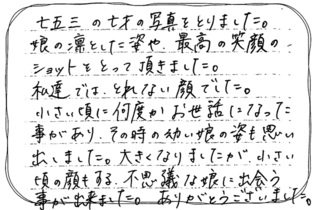 七五三の七才の写真をとりました。
娘の凛とした姿や、最高の笑顔の
ショットをとって頂きました。
私達では、とれない顔でした。
小さい頃に何度かお世話になった
事があり、その時の幼い娘の姿も思い
出しました。大きくなりましたが、小さい
頃の顔もする、不思議な娘に出会う
事が出来ました。ありがとうございました。